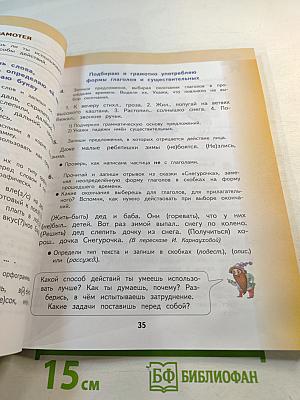 РАМОТЕЯ
Подбираю и грамотно употребляю
формы глаголов и существительных
4. Запиши предложения, выбирая окончания глаголов в прошедшем времени. Выдели их. Укажи, что повлияло на выбор окончания.
1. К вечеру стихл.. гроза. 2. Жил.. попугай на ветвях высокого каштана. 3. Растопил.. солнышко снега. 4. По
звонкие ручьи.
1) Подчеркни грамматическую основу предложений.
2) Укажи падежи имён существительных.
5. Запиши предложения, в которых отрицается действие лица.
Даже малые ребятишки зимы (не)боятся. (На)лились.
• Проверь, как написана частица не с глаголами.
6. Прочитай и запиши отрывок из сказки «Снегурочка», заменяя неопределённую форму глаголов в скобках на форму прошедшего времени.
• Какие окончания выберешь для глаголов, для прилагательного? Вспомни, как нужно действовать при выборе оконча-
(Жить-быть) дед и баба. Они (горевать), что у них
(не)был.. детей. Вот раз зимой выпал.. снегу по колено.
(Решить) дед слепить дочку из снега. (Получиться) хо-
рош.. дочка Снегурочка. (В пересказе И. Карнауховой)
• Определи тип текста и запиши в скобках (повест.), (опис.)
или (рассужд.).
Какой способ действий ты умеешь использо-
вать лучше? Как ты думаешь, почему? Раз-
берись, в чём испытываешь затруднение.
Какие задачи поставишь перед собой?
35
15 см
БФ БИБЛИОФАН